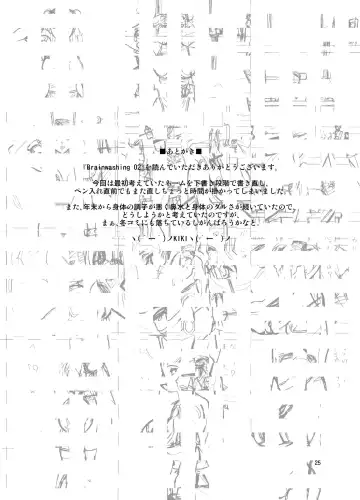 ■あとがき■
「Brainwashing 02」を読んでいただきありがとうございます。
今回は最初考えていたネームを下書き段階で書き直し、
ペン入れ直前でもまた直しちょっと時間が掛かってしまいました。
また、年末から身体の調子が悪く鼻水と身体のダルさが続いていたので、
どうしようかと考えていたのですが、
まぁ、冬コミにも落ちているしがんばろうかなと。
ヽ(´ー｀)ノKIKIヽ(´ー｀)ノ
25